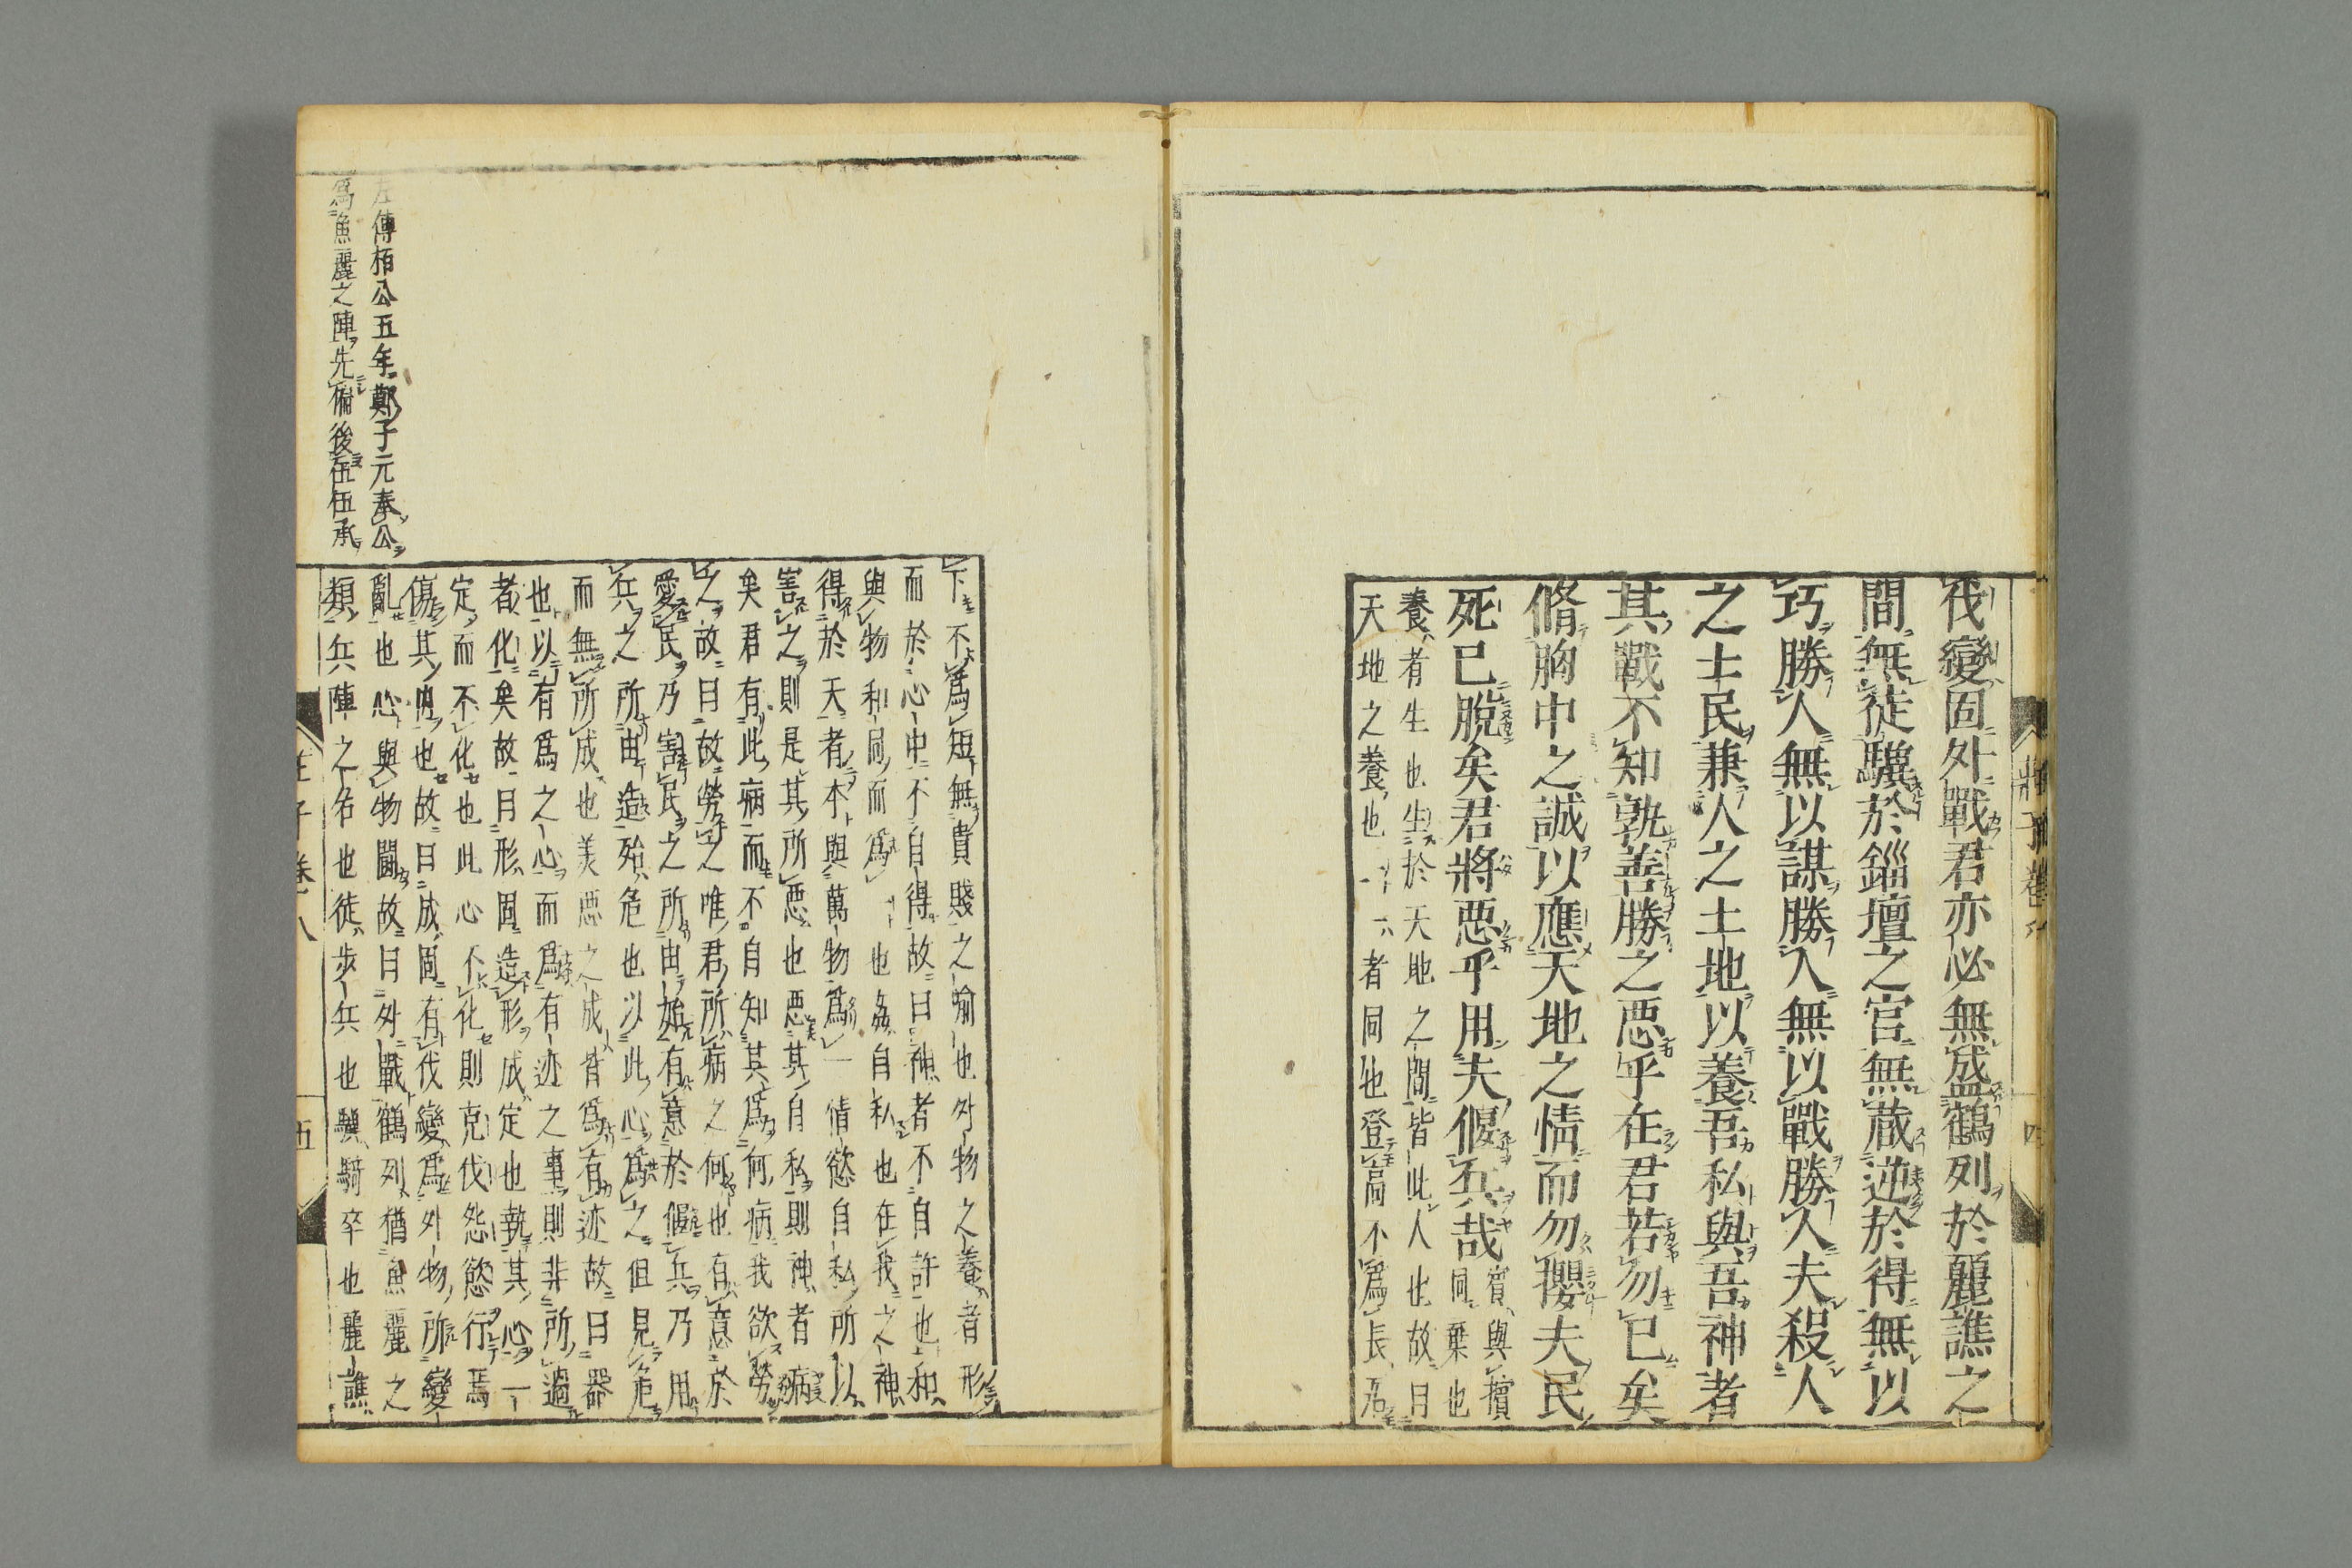 伐變固外戰君亦必無盛鶴列於麗譙之
間無徒驥於錙壇之宮無蔵逆於得無以
巧勝人無以謀勝人無以戰勝人夫殺人
之士民兼人之土地以養吾私與吾神者
其戰不知孰善勝之惡乎在君若勿已矣
脩胸中之誠以應天地之情而勿攖夫民
死已脫矣君將惡乎用夫偃兵哉
賓與擯
同棄也
養者生也生於天地之間皆此人也故曰
天地之養也一者同也登高不爲長居
下不爲短無貴賤之喻也外物之養者形
而於心中不自得故曰神者不自許也和
與物和同而爲一也姦自私也在我之神
得於天者本與萬物爲一情慾自私所以
害之則是其所惡也惡其自私則神者病
矣君有此病而不自知其爲何病我欲勞
之故曰故勞之唯君所病之何也有意於
愛民乃害民之所由始有意於偃兵乃用
兵之所由造殆危也以此心爲之但見危
而無所成也美惡之成皆爲有迹故曰器
也以有爲之心而爲有迹之事則非所過
者化矣故曰形固造形成定也執其心一
定而不化也此心不化則克伐怨慾行焉
傷其内也故曰成固有伐變爲外物所變
亂也心與物鬪故曰外戰鶴列猶魚麗之
類兵陣之名也徒步兵也驥騎卒也麗譙
左傳桓公五年鄭子元奉公
爲魚麗之陣先偏後伍伍承
莊子卷八
五